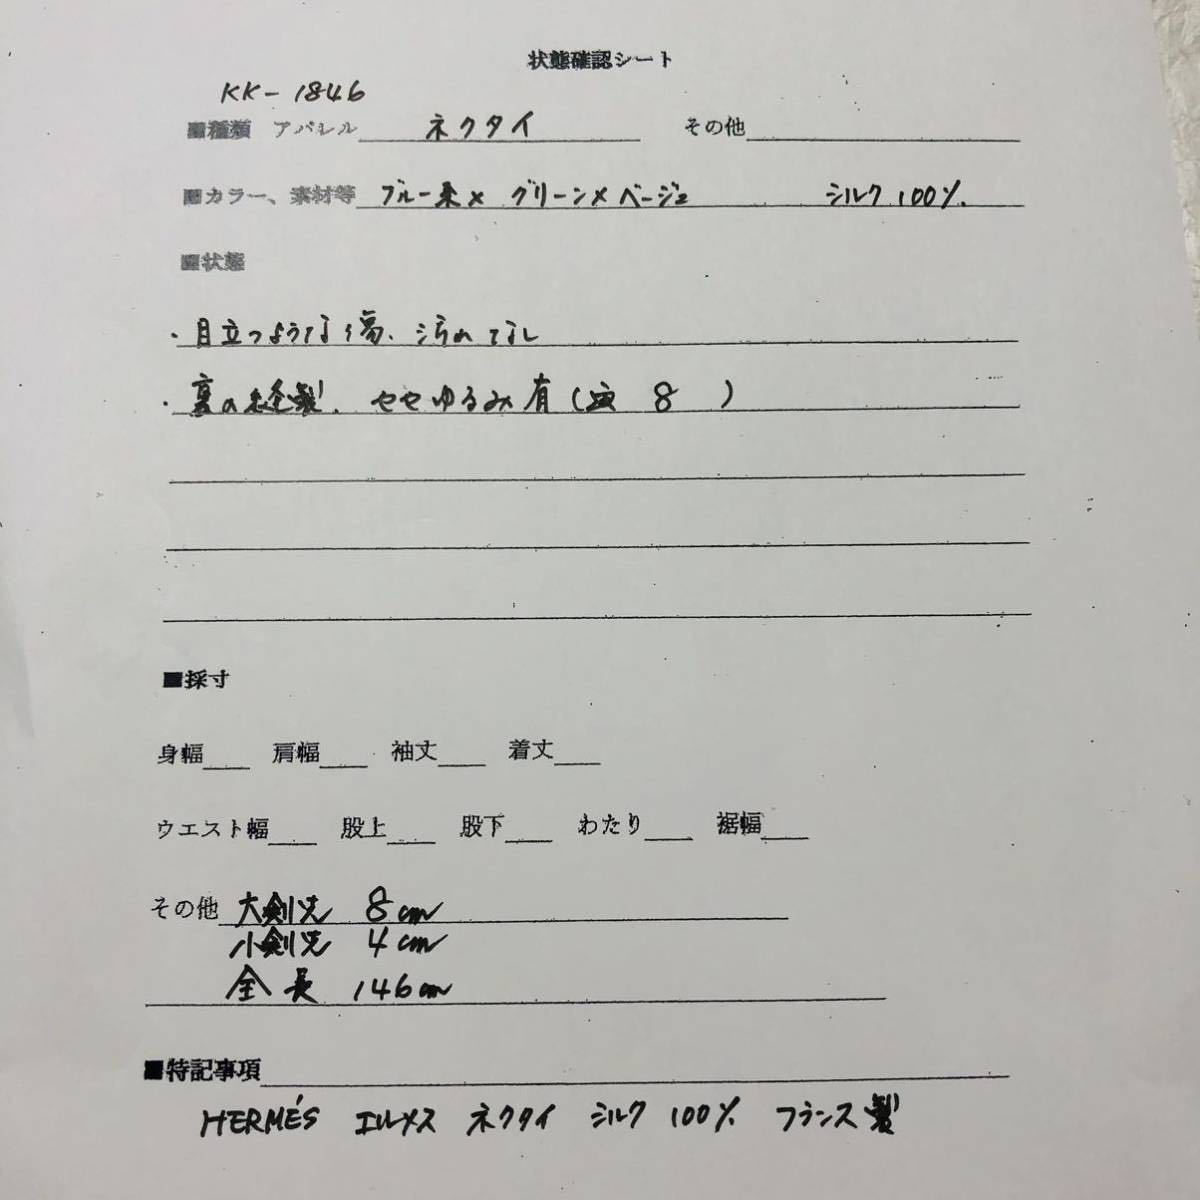 状態確認シート
KK-1846
■種類 アパレル ネクタイ その他
■カラー、素材等 ブルー系× グリーン×ベージュ シルク 100%.
■状態
・目立つような傷、汚れなし
・裏の縫製、ややゆるみ有( 8 )
■採寸
身幅 肩幅 袖丈 着丈
ウエスト幅 股上 股下 わたり 裾幅
その他 大剣先 8cm
小剣先 4cm
全長 146cm
■特記事項
HERMÉS エルメス ネクタイ シルク 100% フランス製